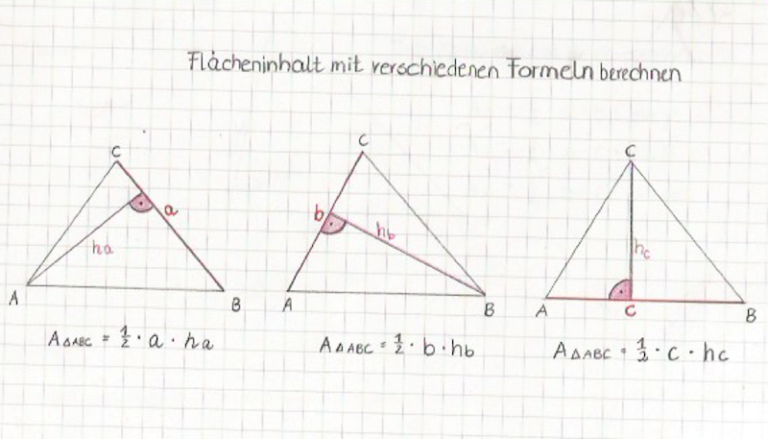 Flächeninhalt mit verschiedenen Formeln berechnen
C
a
ha
A
B
A△ABC = 1/2 · a · ha
C
b
hb
A
B
A△ABC = 1/2 · b · hb
C
hc
A
C
B
A△ABC = 1/2 · c · hc